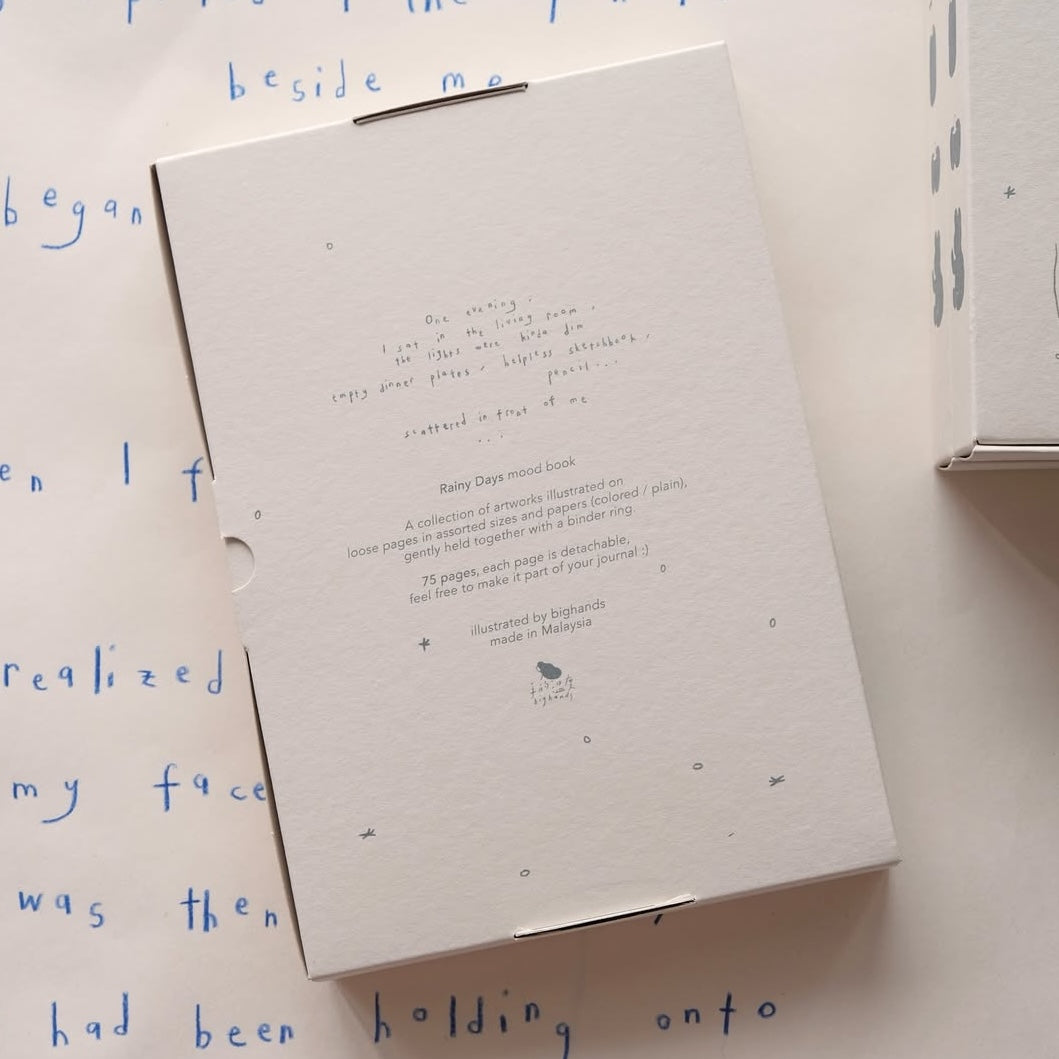 beside me
began
One evening,
I sat in the living room,
the lights were kinda dim
empty dinner plates, helpless sketchbook,
pencil...
scattered in front of me
...
Rainy Days mood book
A collection of artworks illustrated on
loose pages in assorted sizes and papers (colored / plain),
gently held together with a binder ring.
75 pages, each page is detachable,
feel free to make it part of your journal :)
illustrated by bighands
made in Malaysia
bighands
I f
realized
my face
was then
had been holding onto